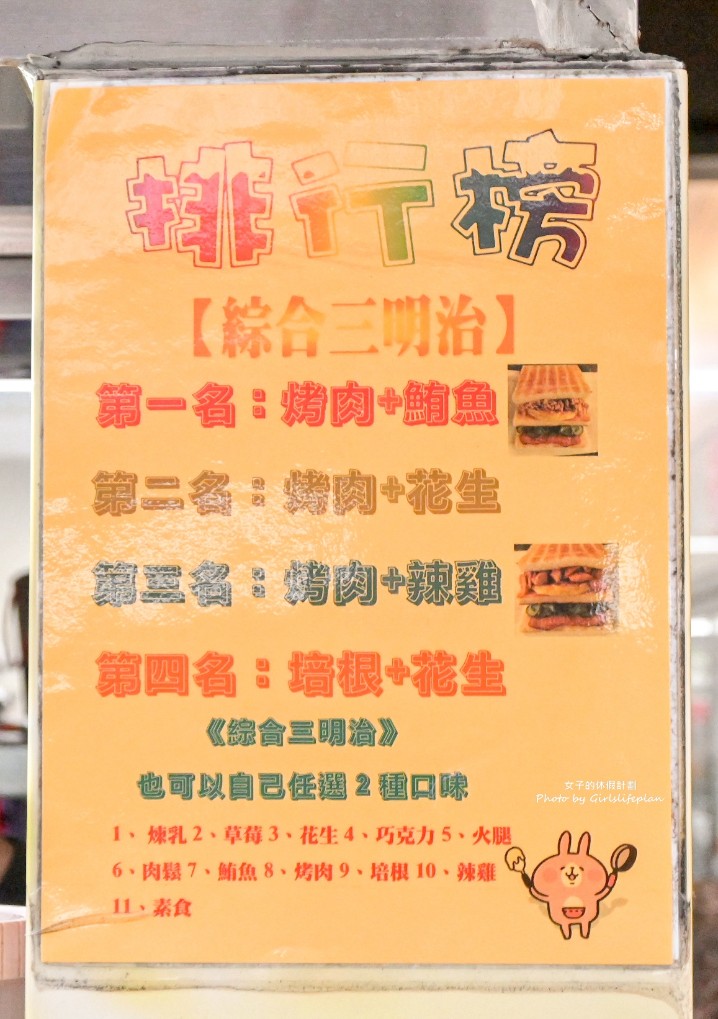 排行榜
【綜合三明治】
第一名：烤肉+鮪魚
第二名：烤肉+花生
第三名：烤肉+辣雞
第四名：培根+花生
《綜合三明治》
也可以自己任選 2 種口味
女子的休假計劃
Photo by Girlslifeplan
1、煉乳 2、草莓 3、花生 4、巧克力 5、火腿
6、肉鬆 7、鮪魚 8、烤肉 9、培根 10、辣雞
11、素食